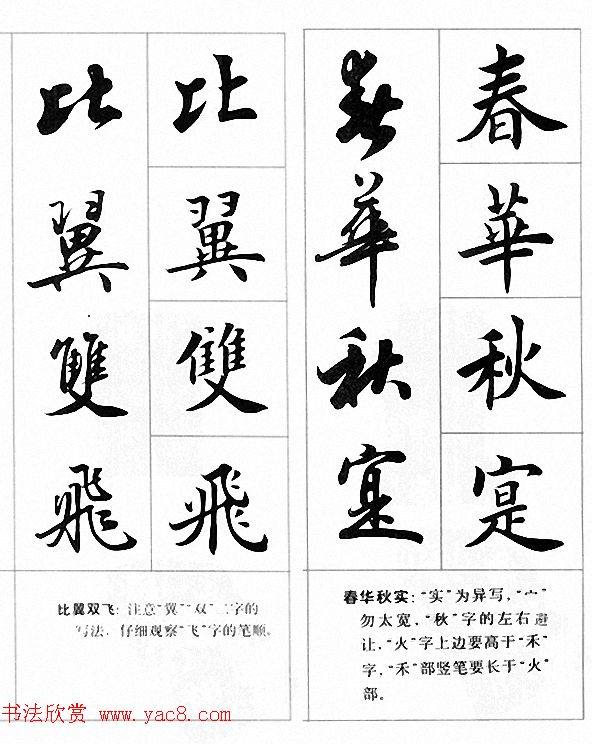 春華秋寔
春華秋寔
春华秋实：“实”为异写，“宀”
勿太宽，“秋”字的左右避
让，“火”字上边要高于“禾”
字，“禾”部竖笔要长于“火”
部。
比翼雙飛
比翼雙飛
比翼双飞：注意“翼”“双”二字的
写法，仔细观察“飞”字的笔顺。
书法欣赏 www.yac8.com